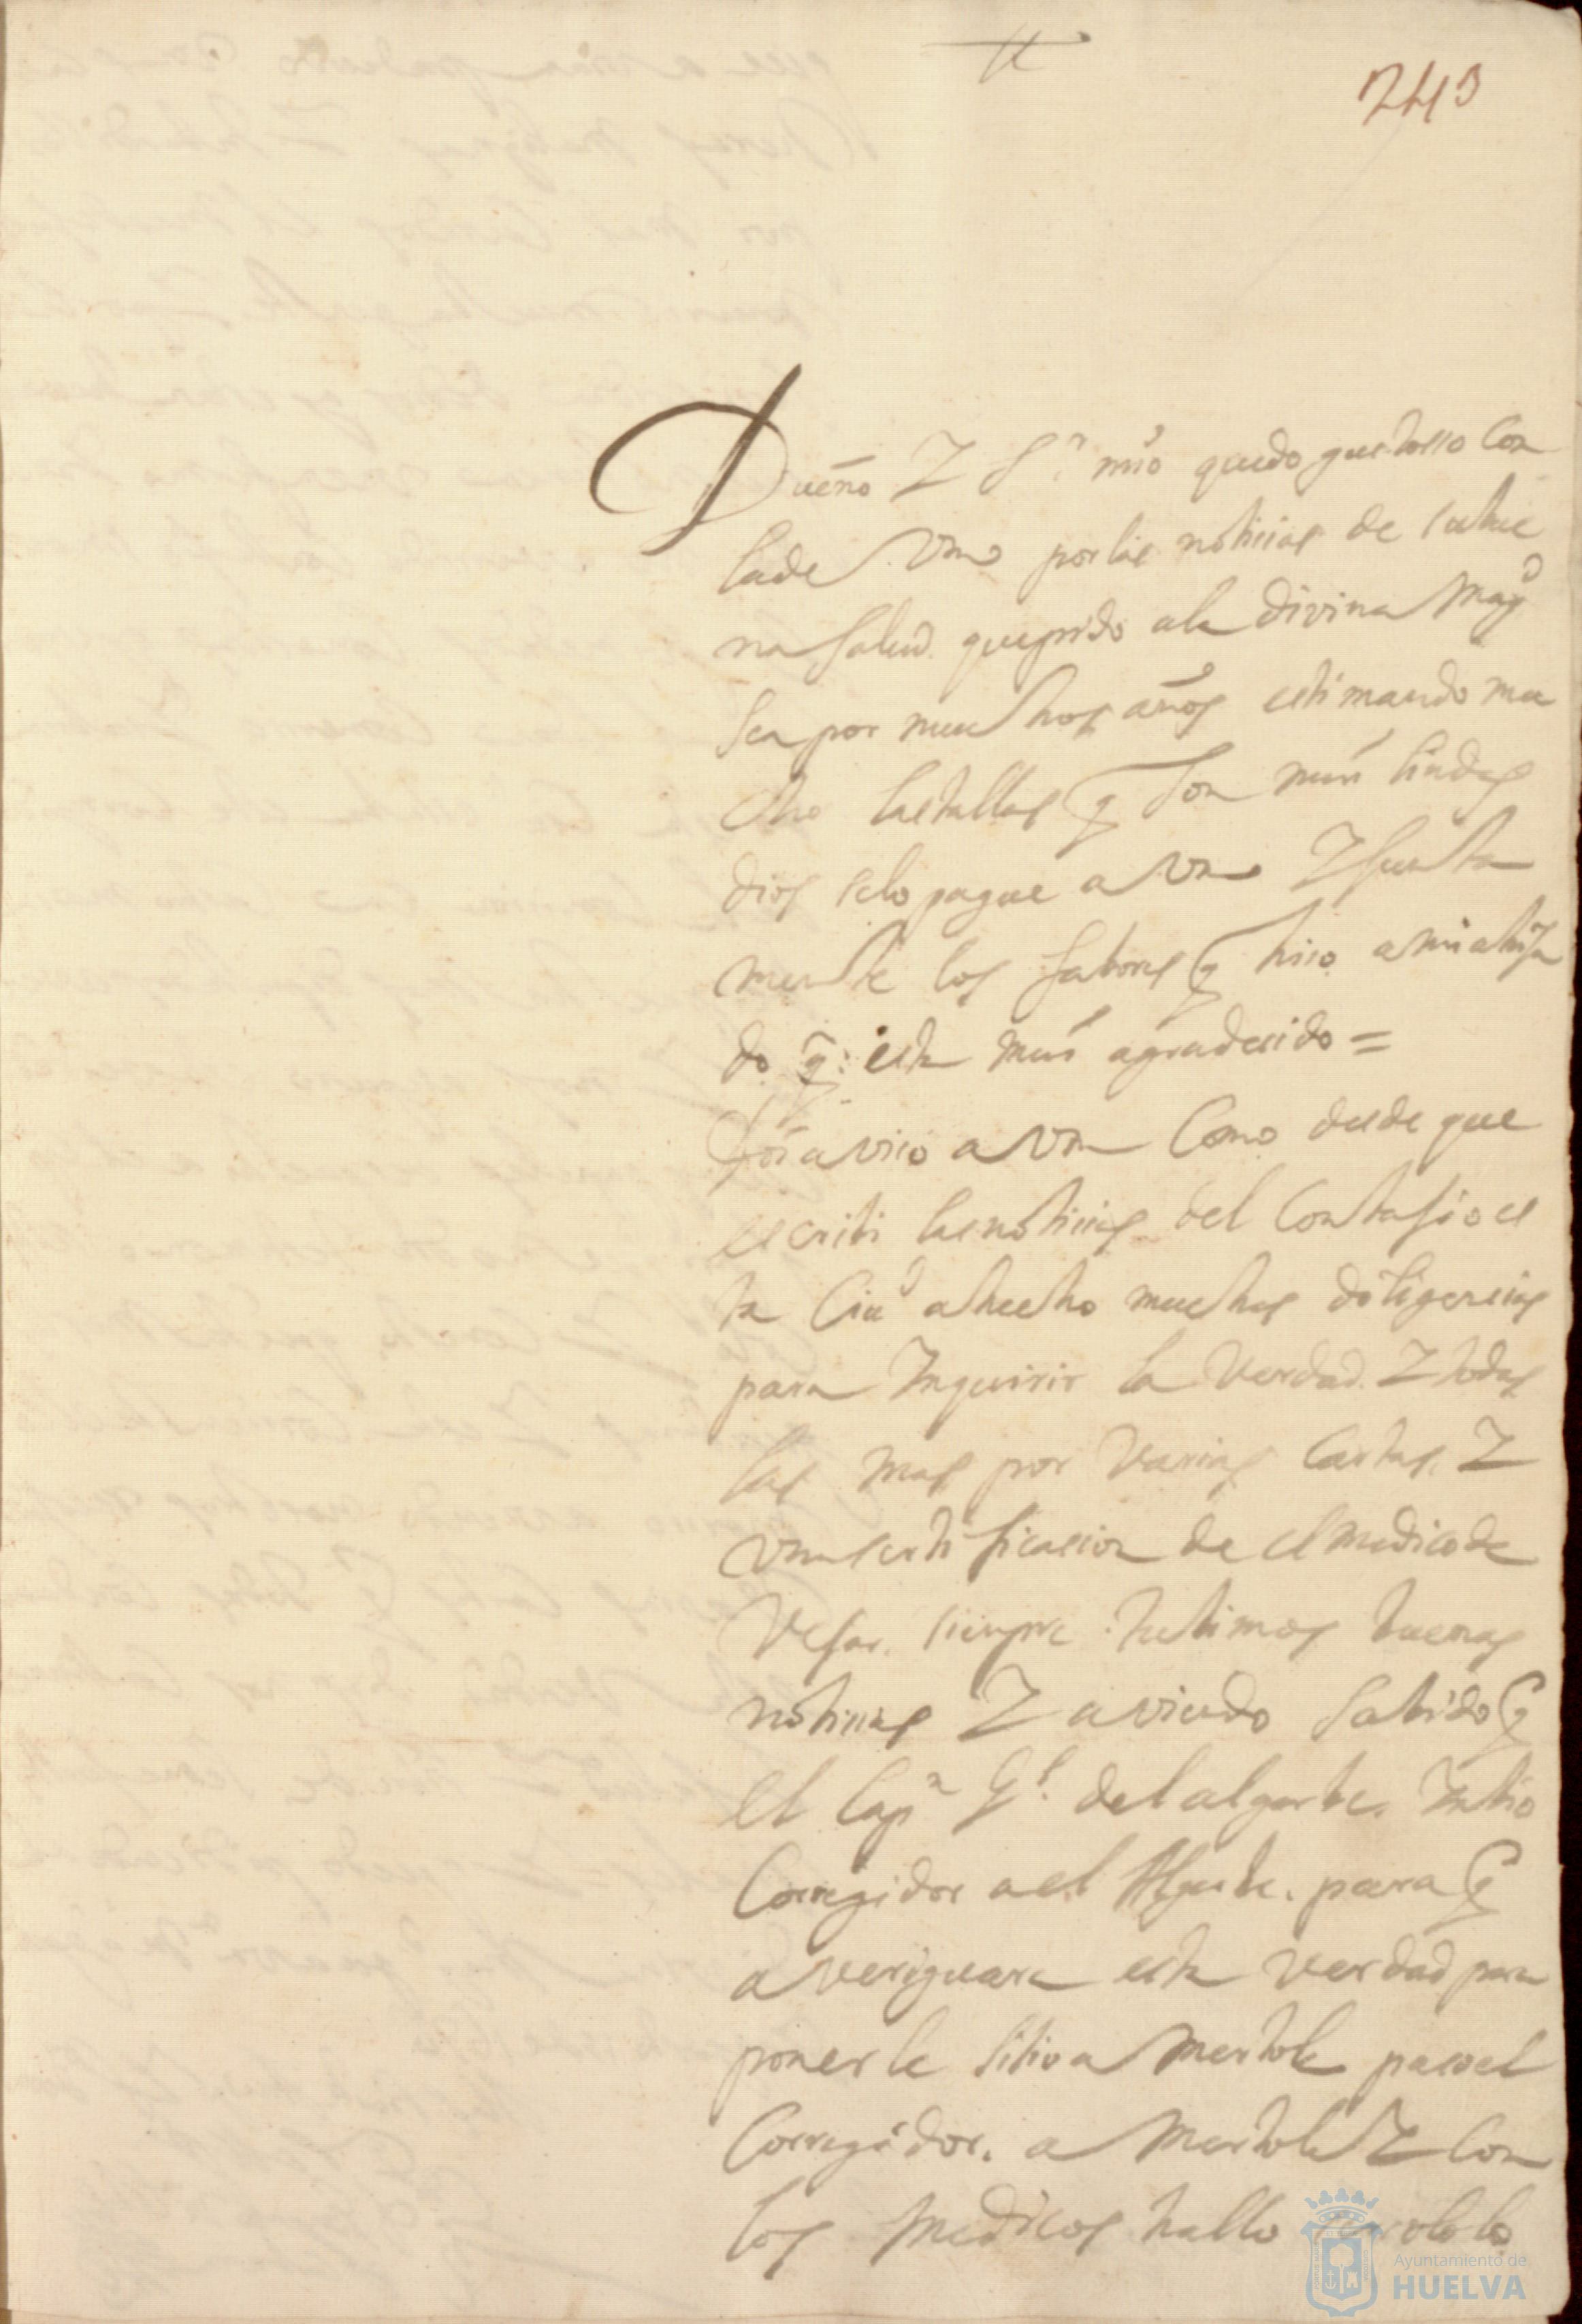 243
Dueño Y Sr. mio quedo gustosso Con
la de Vm por las noticias de su bue
na salud que pido a la divina Magd
sea por muchos años estimando mu
cho las tallas q son mui lindas
dios se lo pague a Vm Y Junta
mente los fabores q hiso a mi ahija
do q esta mui agradesido =
Doi aviso a Vm Como desde que
escribi las noticias del Contajio es
ta Ciud a hecho muchas diligencias
para Inquirir la Verdad Y todas
las mas por Varias Cartas Y
una sertificasion de el medico de
Vejar siempre tubimos buenas
noticias Y aviendo sabido q
el Capn Gl. del algarbe. Inbio
Corregidor a el Algarbe. para q
averiguara esta verdad para
ponerle sitio a Mertola paso el
Corregidor. a Mertola Y Con
los Medicos hallo solo lo
Ayuntamiento de
HUELVA